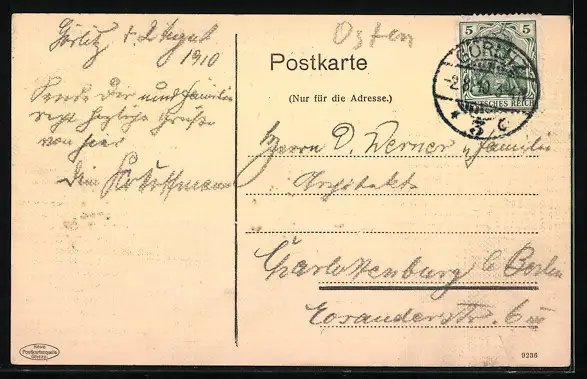 Görlitz, d. 2 August
1910
Sende Dir und Familie
recht herzliche Grüße
von hier
Dein
Osten
Postkarte
(Nur für die Adresse.)
5 5
GÖRLITZ
-2.8.10
DEUTSCHES REICH
* 3 c
Herrn D. Werner u Familie
Architekt
Charlottenburg b/ Berlin
Rosinenstr. 6
Postkartenquelle
9236